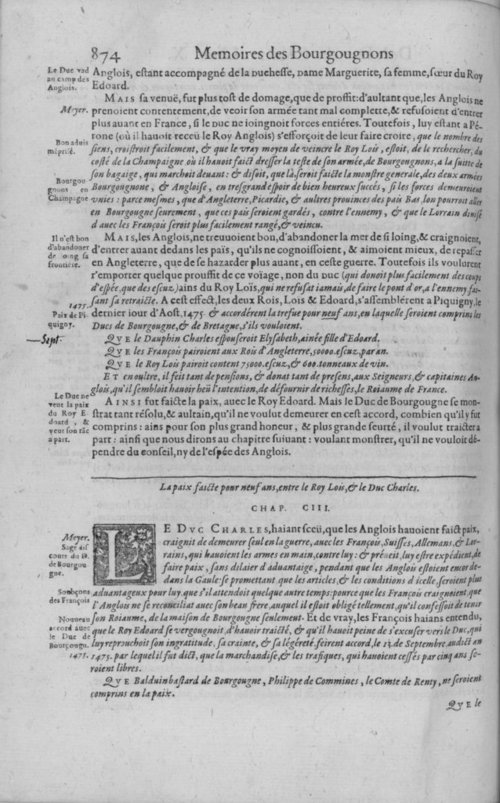 874 Memoires des Bourgougnons
Le Duc vad
au camp des
Anglois.
Anglois, estant accompagné de la duchesse, dame Marguerite, sa femme, sœur du Roy
Edoard.
Meyer.
Bon aduis
mesprisé.
Bourgou
gnons en
Champagne
MAIS sa venuë, fut plus tost de domage, que de proffit: d'aultant que, les Anglois ne
prenoient contentement, de veoir son armée tant mal complette, & refusoient d'entrer
plus auant en France, si le duc ne ioingnoit forces entiéres. Toutefois, luy estant a Pé-
rone (où il hauoit receu le Roy Anglois) s'efforçoit de leur faire croire, que le nombre des
siens, croistroit facilement, & que le vray moyen de veincre le Roy Lois, estoit, de le rechercher, du
costé de la Champaigne où il hauoit faict dresser la teste de son armée, de Bourgougnons, a la suitte de
son bagaige, qui marchoit deuant: & disoit, que là, seroit faicte la monstre generale, des deux armées
Bourgougnone, & Angloise, en tresgrand espoir de bien heureux succés, si les forces demeuroient
vnies: parce mesmes, que d'Angleterre, Picardie, & aultres prouinces des pais Bas, lon pourroit aller
en Bourgougne seurement, que ces pais seroient gardés, contre l'ennemy, & que le Lorrain diuisé
d'auec les François seroit plus facilement rangé, & veincu.
Il n'est bon
d'abandoner
de loing sa
frontiére.
MAIS, les Anglois, ne treuuoient bon, d'abandoner la mer de si loing, & craignoient,
d'entrer auant dedans les pais, qu'ils ne cognoissoient, & aimoient mieux, de repasser
en Angleterre, que de se hazarder plus auant, en ceste guerre. Toutefois ils voulurent
r'emporter quelque prouffit de ce voïage, non du duc (qui donoit plus facilement des coups
d'espée, que des escuz,) ains du Roy Loïs, qui ne refusat iamais, de faire le pont d'or, a l'ennemy, fai-
sant sa retraicte. A cest effect, les deux Rois, Lois & Edoard, s'assemblérent a Piquigny, le
1475.
Paix de Pi-
quigny.
Sept.
dernier iour d'Aost, 1475 & accordérent la trefue pour neuf ans, en laquelle seroient comprins les
Ducs de Bourgougne, & de Bretagne, s'ils vouloient.
QVE le Dauphin Charles espouseroit Elysabeth, ainée fille d'Edoard.
QVE les François paieroient aux Rois d'Angleterre, 50000. escuz, par an.
QVE le Roy Lois paieroit content 75000. escuz, & 600. tonneaux de vin.
ET en oultre, il feit tant de pensions, & donat tant de presens, aux Seigneurs, & capitaines An-
glois, qu'il sembloit hauoir heü l'intention, de défournir de richesses, le Roiaume de France.
Le Duc ne
veut la paix
du Roy E-
doard, &
veut son fac
a part.
AINSI fut faicte la paix, auec le Roy Edoard. Mais le Duc de Bourgougne se mon-
strat tant résolu, & aultain, qu'il ne voulut demeurer en cest accord, combien qu'il y fut
comprins: ains pour son plus grand honeur, & plus grande seurté, il voulut traicter a
part: ainsi que nous dirons au chapitre suiuant: voulant monstrer, qu'il ne vouloit dé-
pendre du conseil, ny de l'espée des Anglois.
La paix faicte pour neuf ans, entre le Roy Lois, & le Duc Charles.
CHAP. CIII.
Meyer.
Sage dis
cours du D.
de Bourgou
gne.
LE DVC CHARLES, haiant sceü, que les Anglois hauoient faict paix,
craignit de demeurer seul en la guerre, auec les François, Suisses, Allemans, & Lor-
rains, qui hauoient les armes en main, contre luy: & préueit, luy estre expédient, de
faire paix, sans dilaier d'aduantaige, pendant que les Anglois estoient encor de-
dans la Gaule: se promettant que les articles, & les conditions d'icelle, seroient plus
Soubçons
des François
aduantageux pour luy, que s'il attendoit quelque autre temps: pource que les François craignoient, que
l'Anglois ne se reconciliat auec son beau frere, auquel il estoit obligé tellement, qu'il confessoit de tenir
son Roiaume, de la maison de Bourgougne seulement. Et de vray, les François haians entendu,
Nouueau
accord auec
le Duc de
Bourgougn.
1475.
que le Roy Edoard se vergougnoit, d'hauoir traicté, & qu'il hauoit peine de s'excuser vers le Duc, qui
luy reprouchoit son ingratitude, sa crainte, & sa légéreté. feirent accord, le 13. de Septembre audict an
1475. par lequel il fut dict, que la marchandise, & les trafiques, qui hauoient cessés par cinq ans se-
roient libres.
QVE Balduin bastard de Bourgougne, Philippe de Commines, le Comte de Renty, ne seroient
comprins en la paix.
QVE le